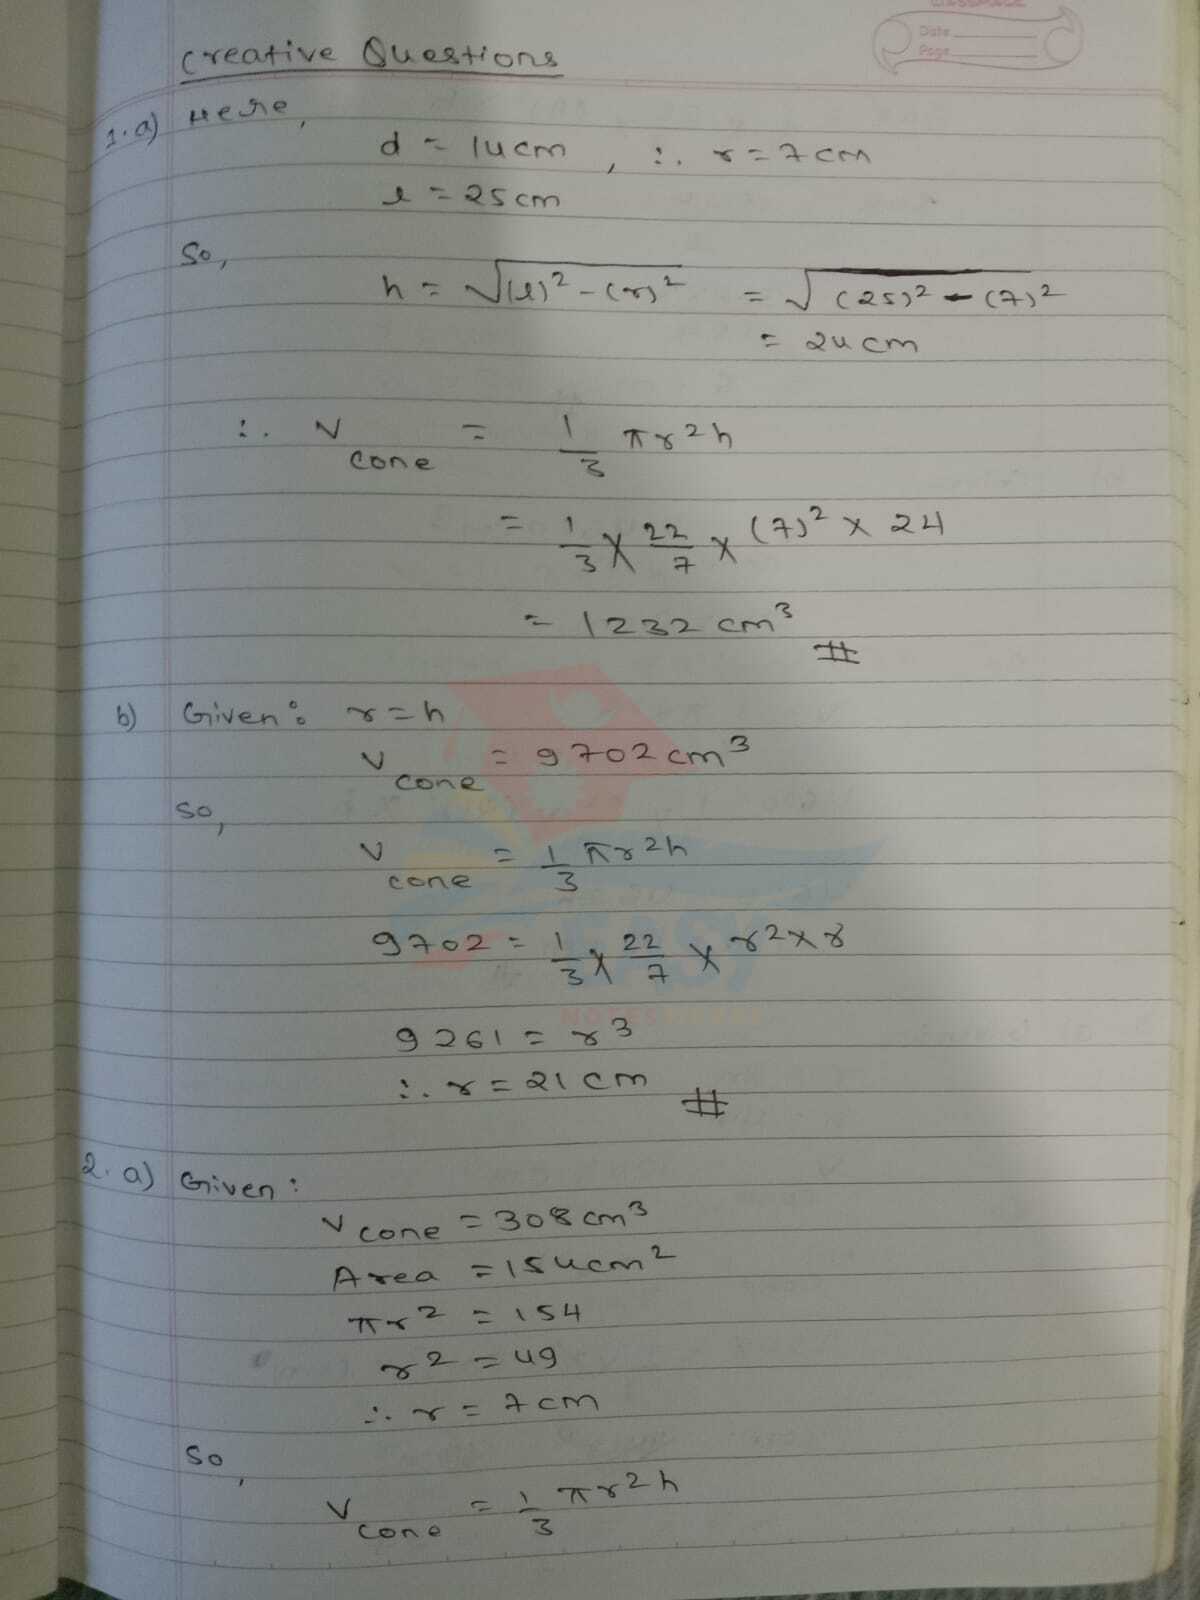 CLASSMATE
Date
Page
Creative Questions
1. a) Here,
d = 14cm, ∴ r = 7cm
l = 25cm
So,
h = √(l)² - (r)² = √(25)² - (7)²
= 24cm
∴ V cone = 1/3 πr²h
= 1/3 × 22/7 × (7)² × 24
= 1232 cm³ #
b) Given: r = h
V cone = 9702 cm³
So,
V cone = 1/3 πr²h
9702 = 1/3 × 22/7 × r² × r
EASY
NOTES
9261 = r³
∴ r = 21 cm #
2. a) Given:
V cone = 308cm³
Area = 154cm²
πr² = 154
r² = 49
∴ r = 7cm
So,
V cone = 1/3 πr²h